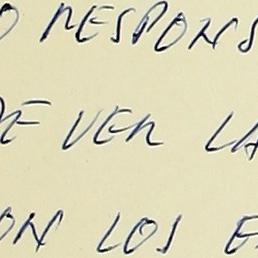 O RESPONS
DE VER LA
ON LOS E